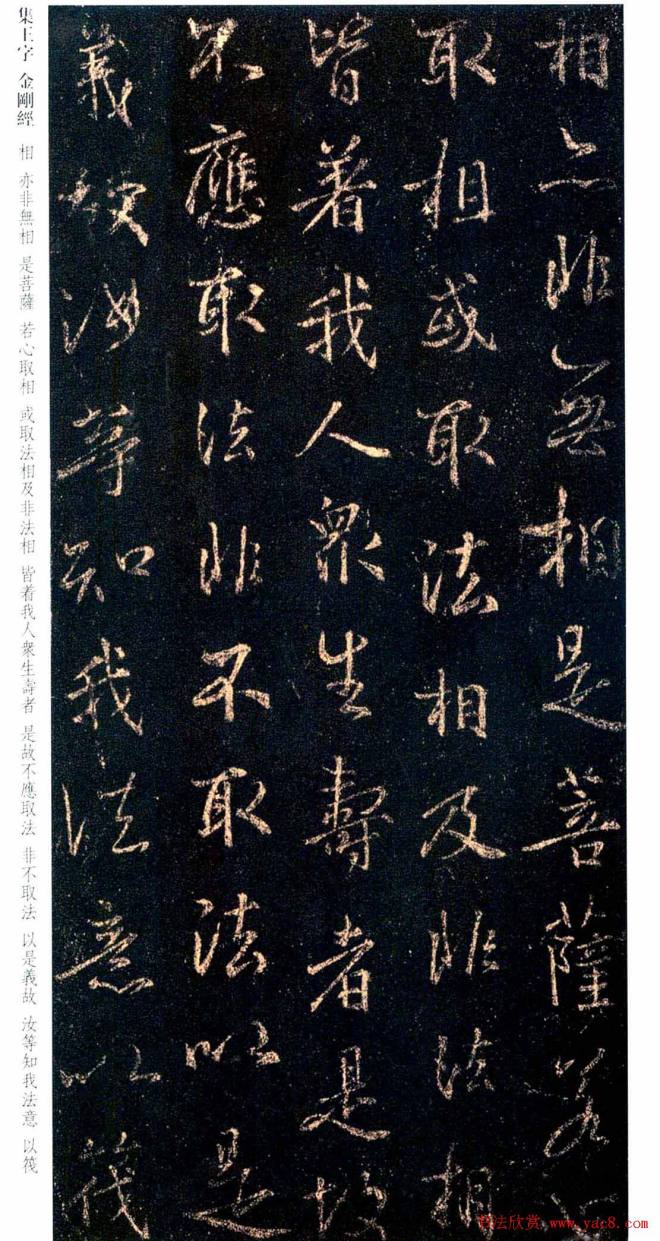 相亦非無相是菩薩若心
取相或取法相及非法相
皆著我人衆生壽者是故
不應取法非不取法以是
義故汝等知我法意以筏
集王字 金剛經 相 亦非無相 是菩薩 若心取相 或取法相及非法相 皆着我人衆生壽者 是故不應取法 非不取法 以是義故 汝等知我法意 以筏
书法欣赏 www.yac8.com